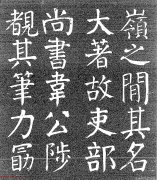 嶺之閒其名
大著故吏部
尚書韋公陟
覩其筆力勗